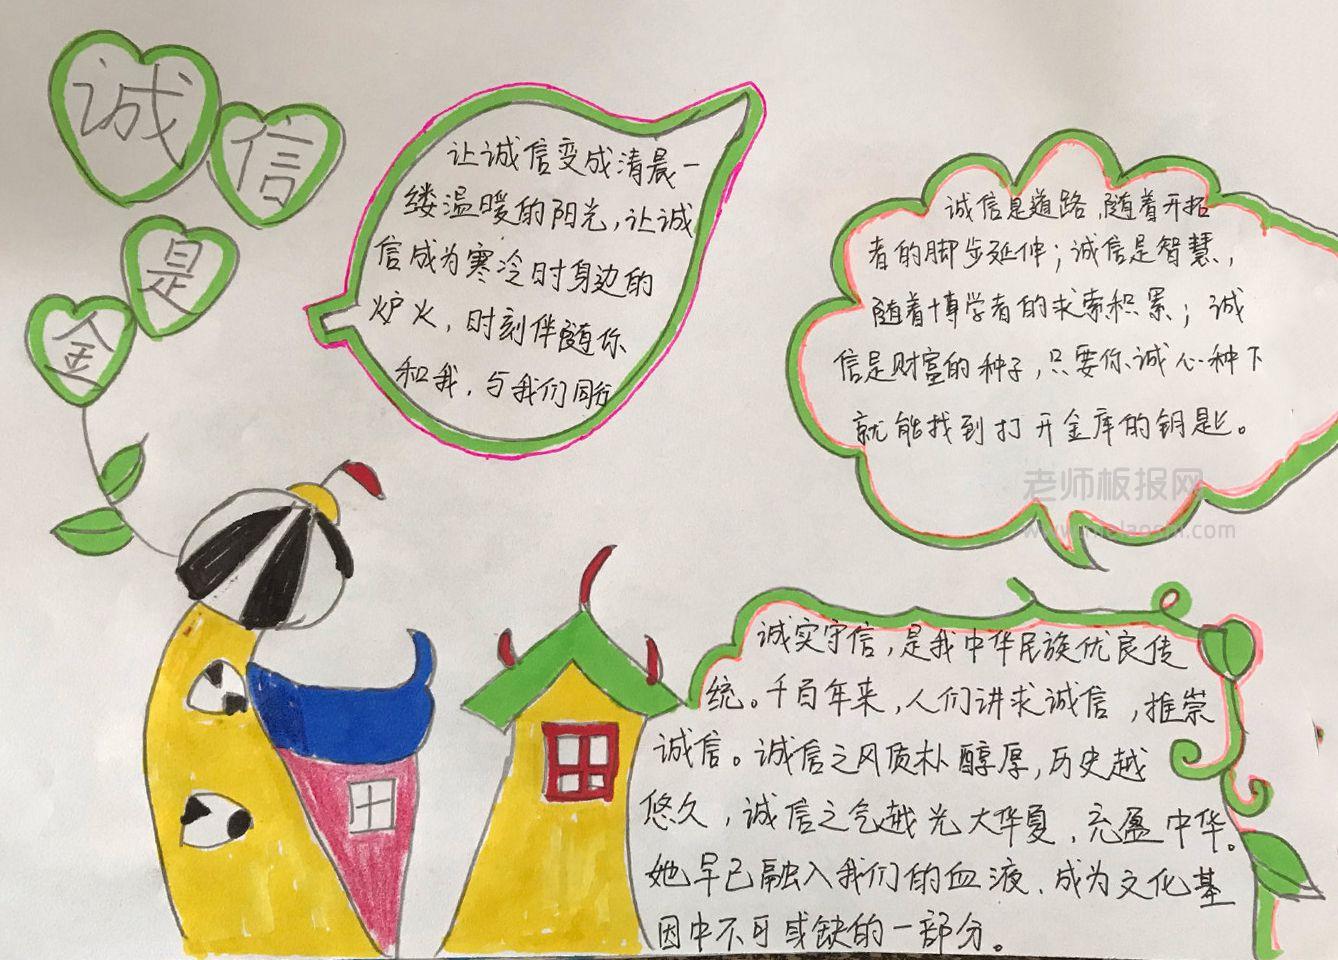 诚
信
是
金
让诚信变成清晨一
缕温暖的阳光,让诚
信成为寒冷时身边的
炉火,时刻伴随你
和我,与我们同行
诚信是道路,随着开拓
者的脚步延伸;诚信是智慧,
随着博学者的求索积累;诚
信是财富的种子,只要你诚心种下
就能找到打开金库的钥匙。
老师板报网
诚实守信,是我中华民族优良传
统。千百年来,人们讲求诚信,推崇
诚信。诚信之风质朴醇厚,历史越
悠久,诚信之气越光大华夏、充盈中华。
她早已融入我们的血液、成为文化基
因中不可或缺的一部分。